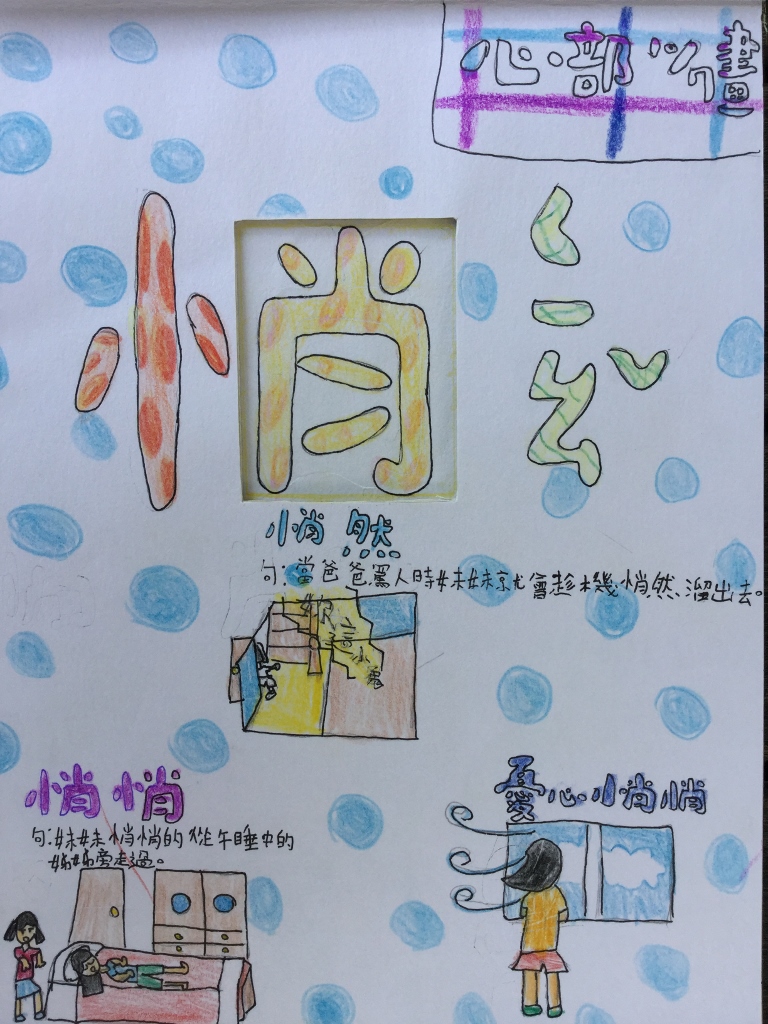 心部7畫
悄
ㄑㄧㄠˇ
悄然
句:當爸爸罵人時妹妹就會趁機悄然溜出去。
悄悄
句:妹妹悄悄的從午睡中的
姊姊旁走過。
憂心悄悄